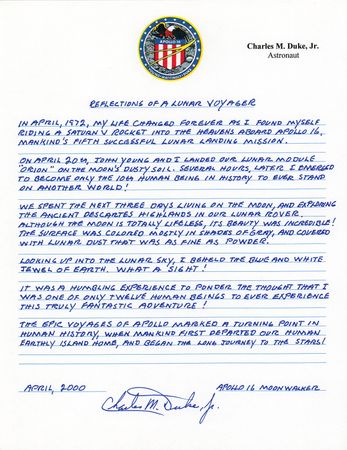 APOLLO 16
Charles M. Duke, Jr.
Astronaut
REFLECTIONS OF A LUNAR VOYAGER
IN APRIL, 1972, MY LIFE CHANGED FOREVER AS I FOUND MYSELF
RIDING A SATURN V ROCKET INTO THE HEAVENS ABOARD APOLLO 16,
MANKIND'S FIFTH SUCCESSFUL LUNAR LANDING MISSION.
ON APRIL 20th, JOHN YOUNG AND I LANDED OUR LUNAR MODULE
"ORION" ON THE MOON'S DUSTY SOIL. SEVERAL HOURS, LATER I EMERGED
TO BECOME ONLY THE 10th HUMAN BEING IN HISTORY TO EVER STAND
ON ANOTHER WORLD!
WE SPENT THE NEXT THREE DAYS LIVING ON THE MOON, AND EXPLORING
THE ANCIENT DESCARTES HIGHLANDS IN OUR LUNAR ROVER.
ALTHOUGH THE MOON IS TOTALLY LIFELESS, ITS BEAUTY WAS INCREDIBLE!
THE SURFACE WAS COLORED MOSTLY IN SHADES OF GRAY, AND COVERED
WITH LUNAR DUST THAT WAS AS FINE AS POWDER.
LOOKING UP INTO THE LUNAR SKY, I BEHELD THE BLUE AND WHITE
JEWEL OF EARTH. WHAT A SIGHT!
IT WAS A HUMBLING EXPERIENCE TO PONDER THE THOUGHT THAT I
WAS ONE OF ONLY TWELVE HUMAN BEINGS TO EVER EXPERIENCE
THIS TRULY FANTASTIC ADVENTURE!
THE EPIC VOYAGES OF APOLLO MARKED A TURNING POINT IN
HUMAN HISTORY, WHEN MANKIND FIRST DEPARTED OUR HUMAN
EARTHLY ISLAND HOME, AND BEGAN THE LONG JOURNEY TO THE STARS!
APRIL, 2000
APOLLO 16 MOONWALKER
Charles M. Duke, Jr.